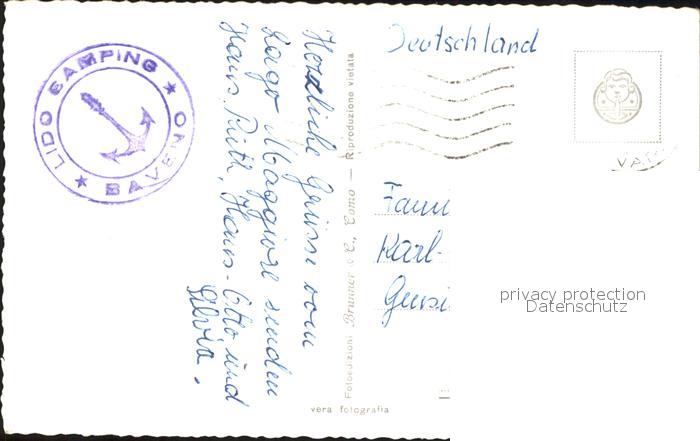 LIDO CAMPING ★ BAVENO ★
Herzliche Grüsse vom
Lago Maggiore senden
Hans, Ruth, Hans-Otto und
Silvia.
Fotoedizioni Brunner & C., Como — Riproduzione vietata
vera fotografia
Deutschland
VA
Fam
Karl-
privacy protection
Datenschutz